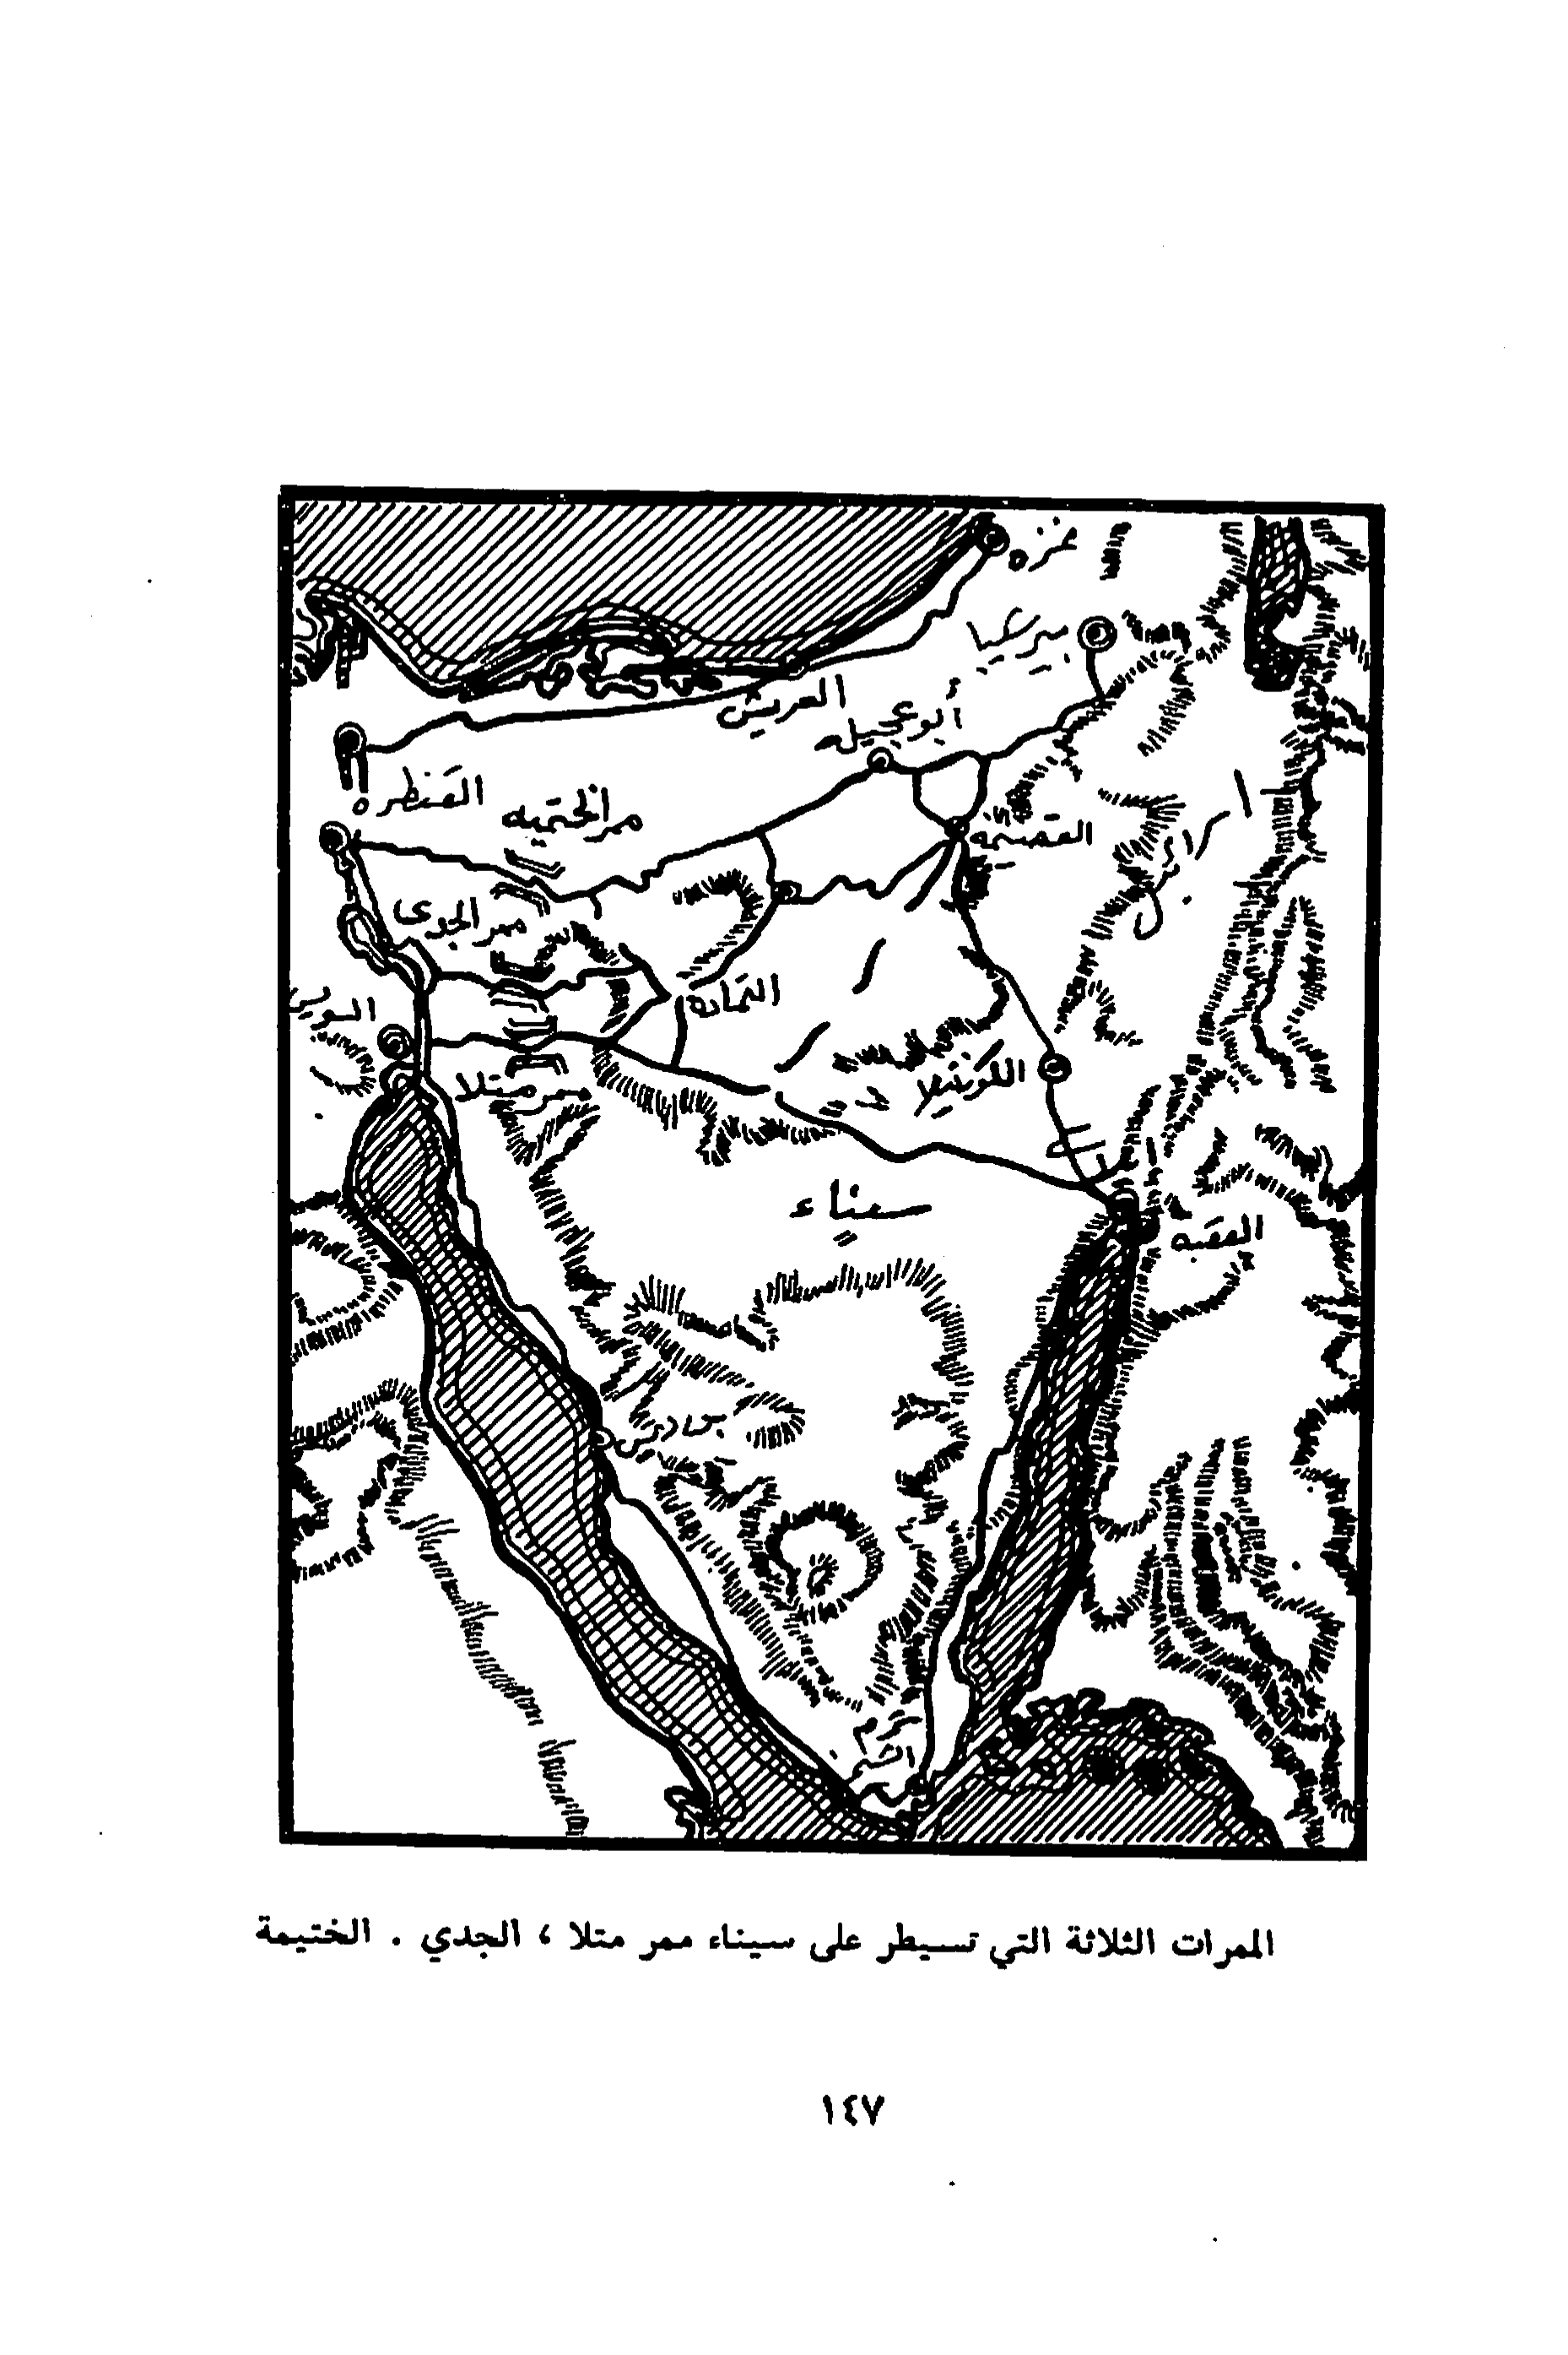 غزه
بيرسبع
العريش
أبو عجيله
القنطره
ممر الختميه
القصيمه
ممر الجدى
التماده
السويس
الكونتيلا
ممر متلا
سيناء
العقبه
شرم
الشيخ
الممرات الثلاثة التي تسيطر على سيناء ممر متلا ، الجدي . الختيمة
١٤٧